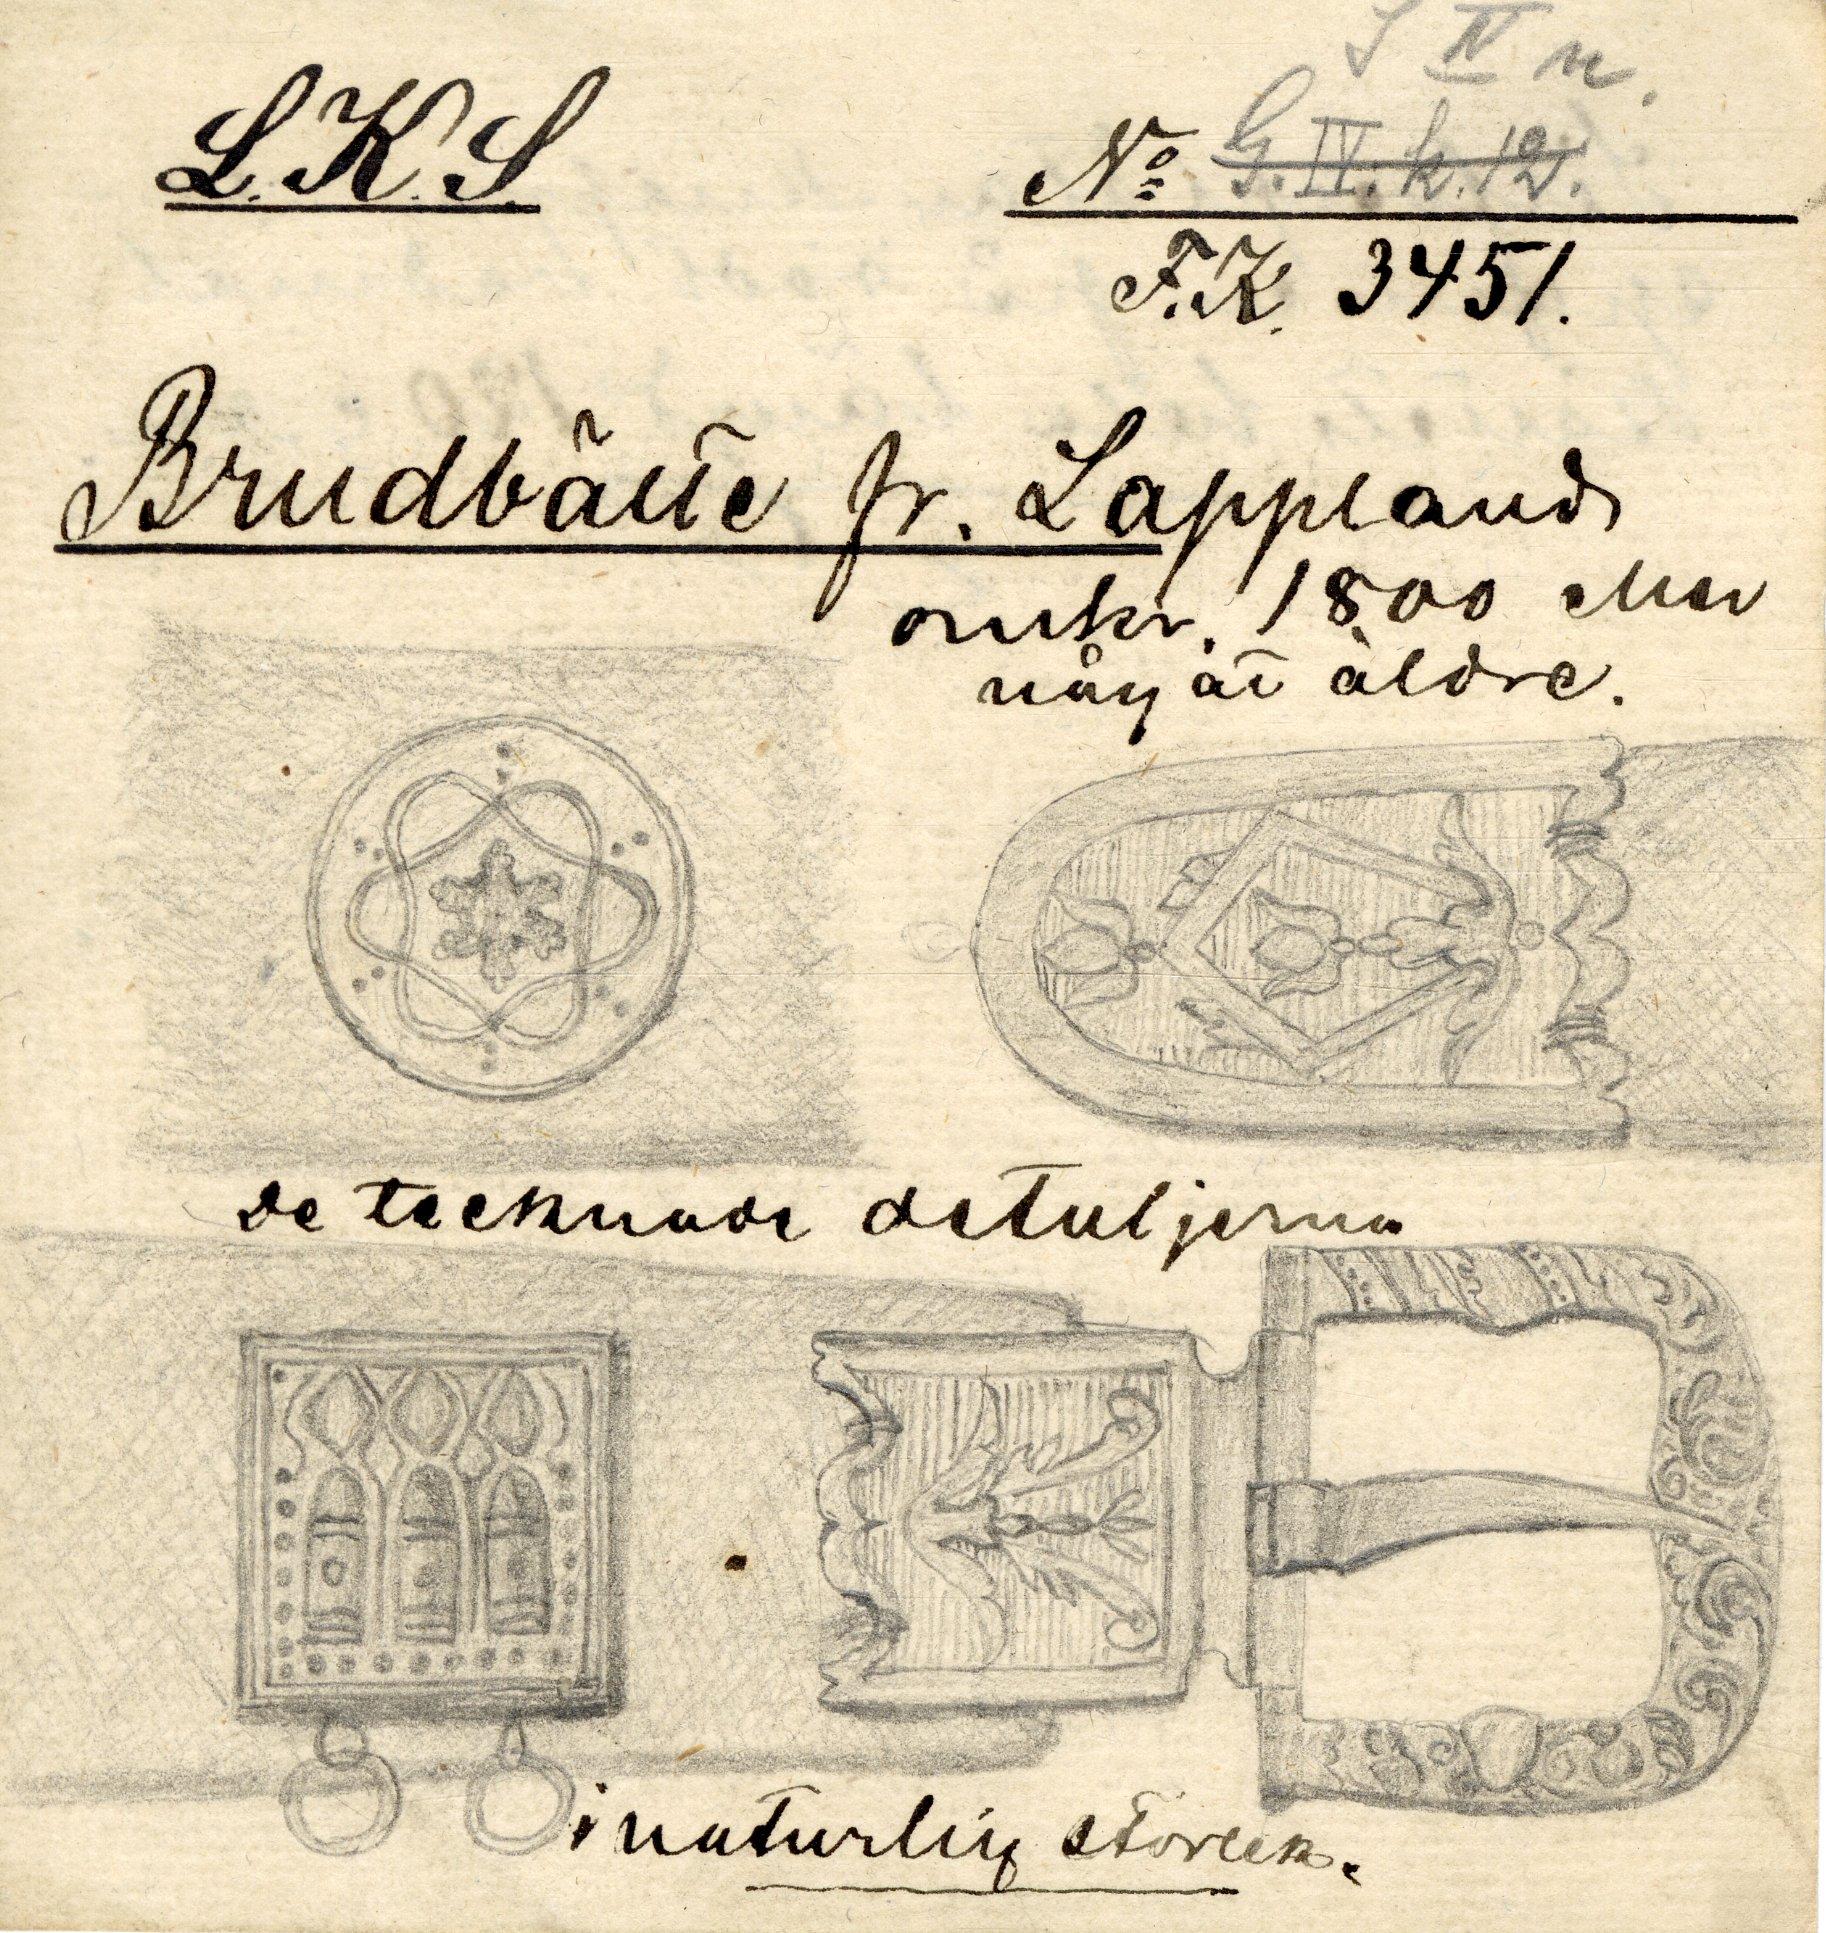 S IV n.
L.K.S. Nº G.IV.k.12.
F.K. 3451.
Brudbälte fr. Lappland
omkr. 1800 eller
något äldre.
De tecknade detaljerna
i naturlig storlek.